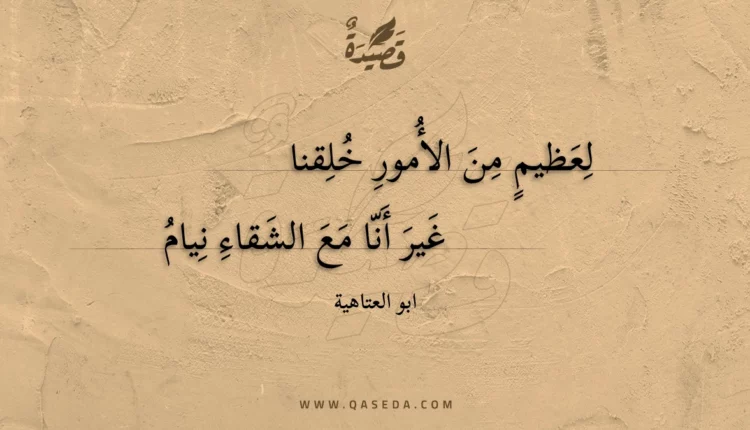 قَصِيْدَةٌ
لِعَظيمٍ مِنَ الأُمورِ خُلِقنا
غَيرَ أَنّا مَعَ الشَقاءِ نِيامُ
ابو العتاهية
WWW.QASEDA.COM